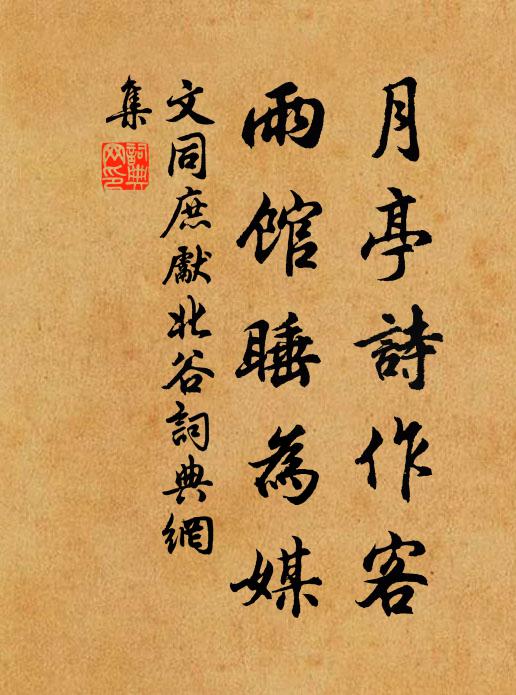 月亭詩作客
雨館睡為媒
文同庶獻北谷詞典網
集
詞典
网印